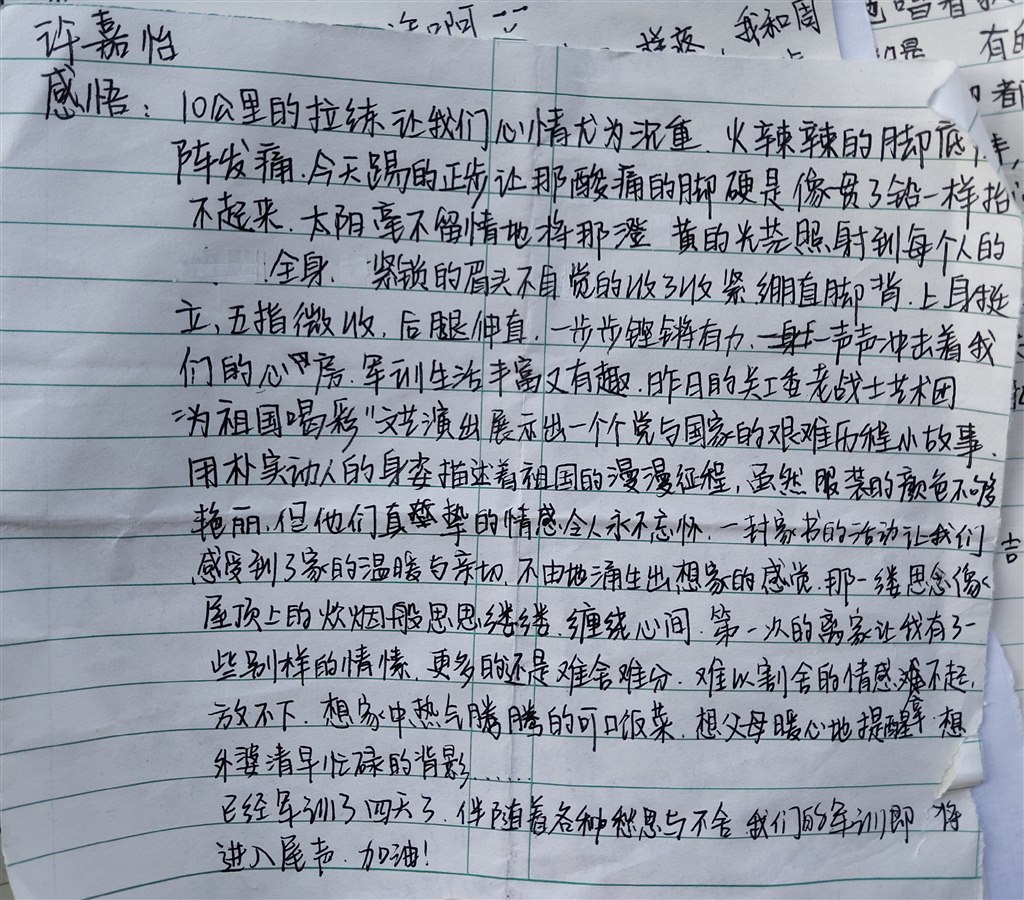 许嘉怡
感悟：10公里的拉练让我们心情尤为沉重.火辣辣的脚底阵
阵发痛.今天踢的正步让那酸痛的脚硬是像贯了铅一样抬
不起来.太阳毫不留情地将那澄黄的光芒照射到每个人的
全身.紧锁的眉头不自觉的收了收紧绷直脚背.上身挺
立,五指微收,后腿伸直.一步步铿锵有力.一声声冲击着我
们的心房.军训生活丰富又有趣.昨日的关工委老战士艺术团
"为祖国喝彩"文艺演出展示出一个个党与国家的艰难历程小故事.
用朴实动人的身姿描述着祖国的漫漫征程,虽然服装的颜色不够
艳丽,但他们真挚的情感令人永不忘怀.一封家书的活动让我们
感受到了家的温暖与亲切.不由地涌生出想家的感觉.那一缕思念像
屋顶上的炊烟般思思缕缕.缠绕心间.第一次的离家让我有了一
些别样的情愫.更多的还是难舍难分.难以割舍的情感拿不起,
放不下.想家中热气腾腾的可口饭菜.想父母暖心地提醒.想
外婆清早忙碌的背影......
已经军训了四天了.伴随着各种愁思与不舍我们的军训即将
进入尾声.加油!